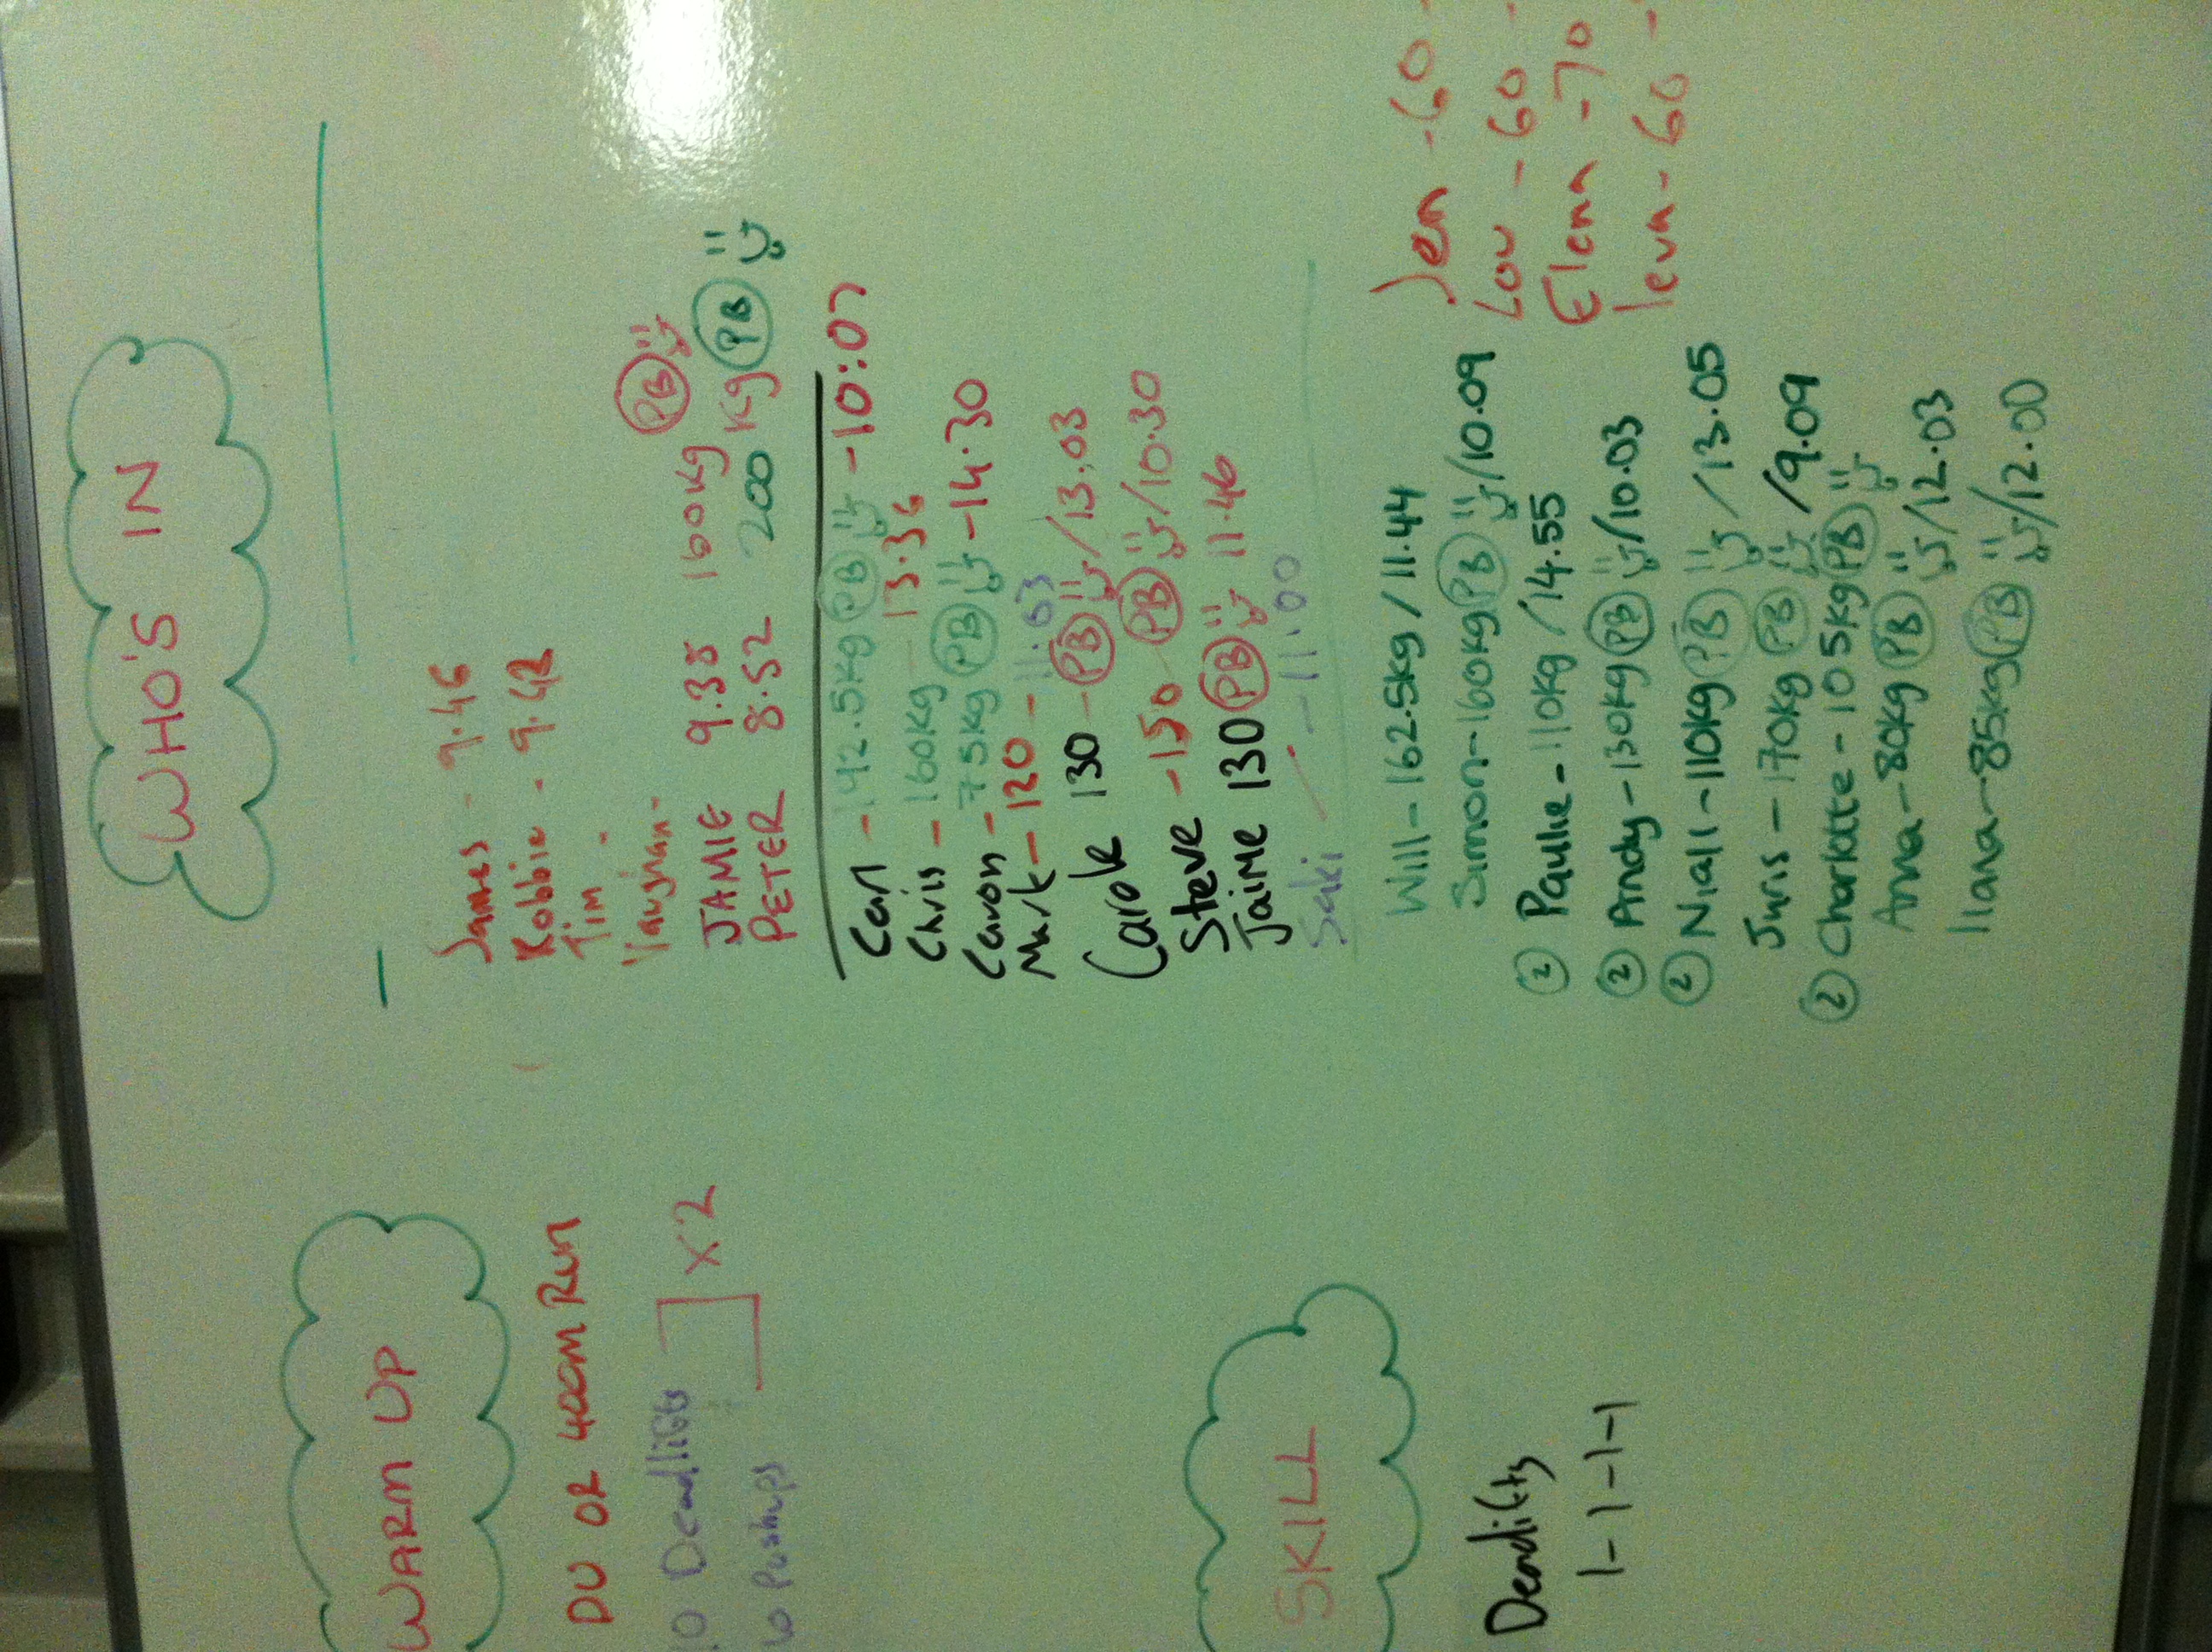 WARM UP
DU OR 400M RUN
10 Deadlifts
10 Pushups
x2
SKILL
Deadlifts
1-1-1-1
WHO'S IN
James - 9.46
Robbie - 9.42
Tim -
Vaughan -
JAMIE 9.38 160kg PB
PETER 8.52 200kg PB
Carl - 142.5kg PB - 10:07
Chris - 160kg - 13.36
Caron - 75kg PB - 14.30
Mark - 120 - 11.03
Carole 130 - PB /13.03
Steve - 150 - PB /10.30
Jaime 130 PB 11.46
Saki - - 11.00
Will - 162.5kg / 11.44
Simon - 160kg PB /10.09
② Paulie - 110kg / 14.55
② Andy - 130kg PB /10.03
② Niall - 110kg PB / 13.05
Juris - 170kg PB /9.09
② Charlotte - 105kg PB
Anna - 80kg PB /12.03
Ilana - 85kg PB /12.00
Jen - 60 -
Lou - 60 -
Elena - 70
Ieva - 60 -